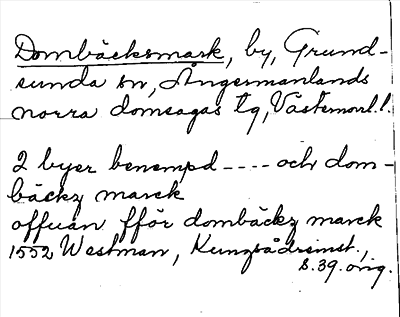 Dombäcksmark, by, Grund-
sunda sn, Ångermanlands
norra domsagas tg, Västernorrl. l.
2 byer benempd ---- och dom-
bäckz marck
offuan fför dombäckz marck
1552 Westman, Kungsådreinst.,
s. 39. orig.